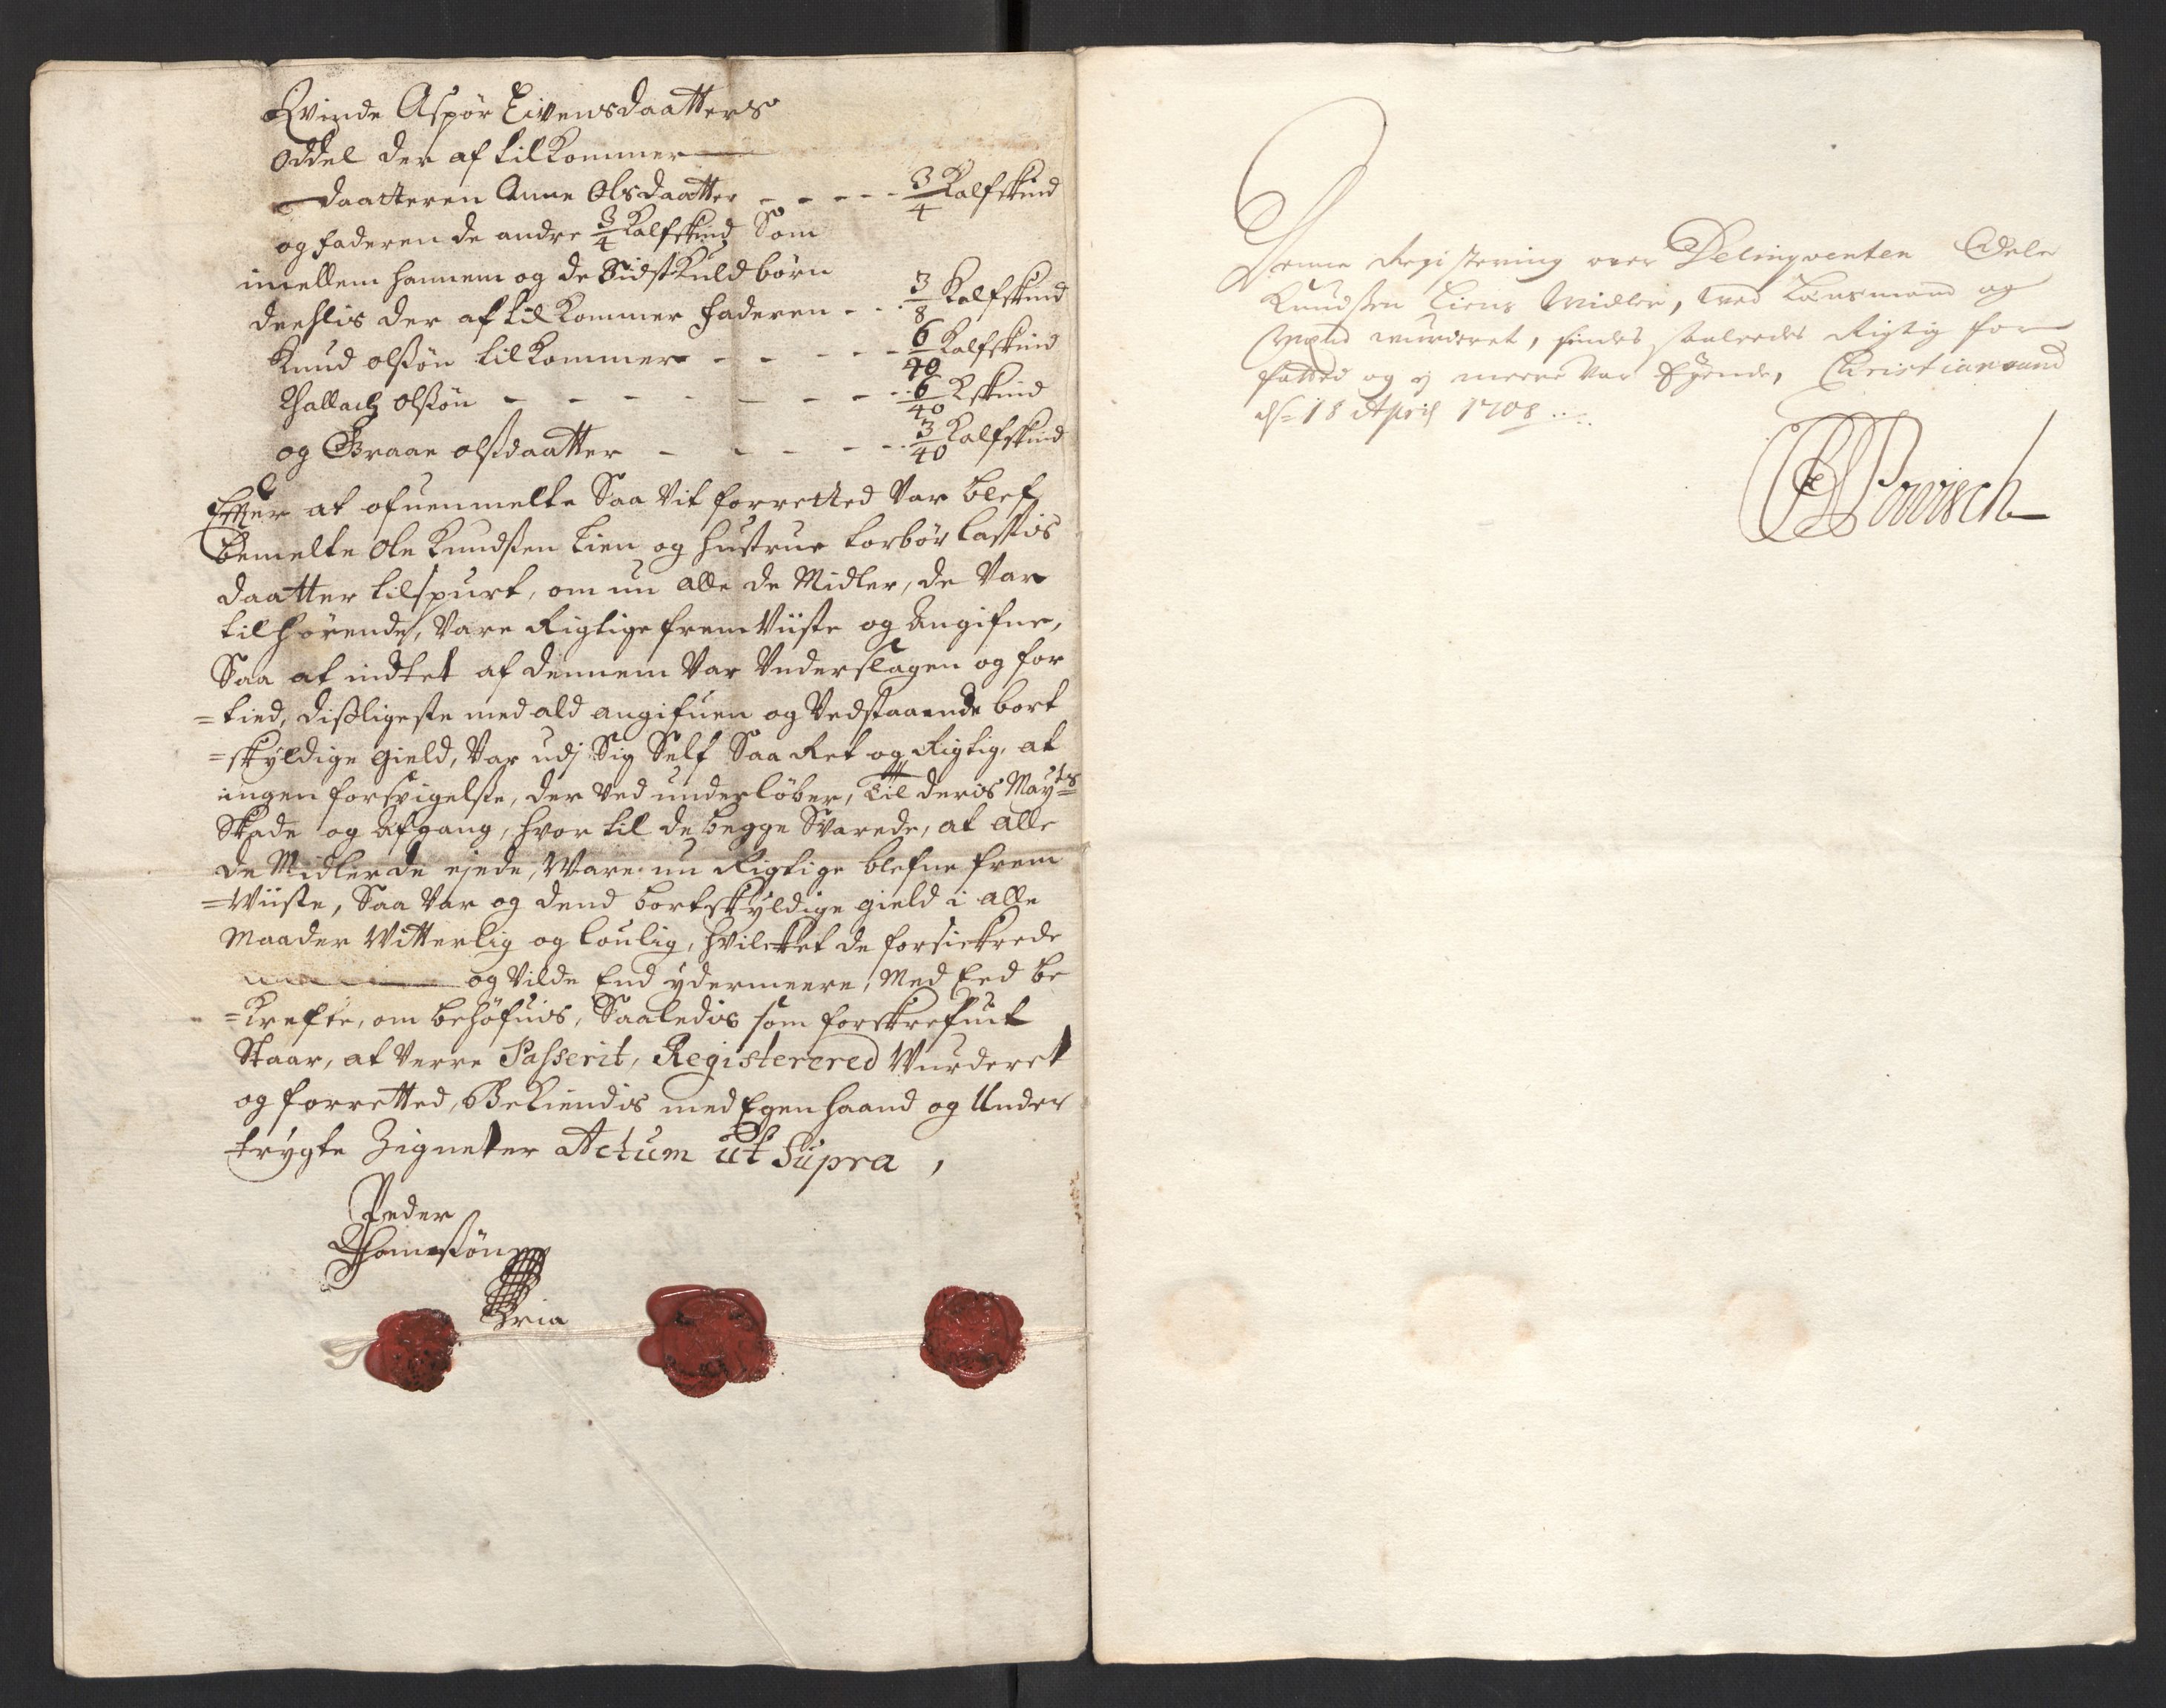 Qvinde Aspör Eivensdaatters
Oddel der af tilkommer
Daatteren Anne Olsdaatter - - - - - 3/4 Kalfskind
og faderen de andre 3/4 Kalfskind, Som
imellem hannem og de Sidst Kuldbörn
deehlis der af tilkommer faderen - - 3/8 Kalfskind
Knud olßön tilkommer - - - - - 6/40 Kalfskind
Thallach olßön - - - - - - - - 6/40 Kskind
og Graae olßdaatter - - - - - 3/40 Kalfskind
Effter at ofuenmelte Saa vit forretted Var blef
bemelte Ole Knudsen Lien og Hustrue torbör
daatter tilspurt, om nu alle de Midler, de Var
tilhörende, Vare Rigtige fremviiste og Angifne,
Saa at indtet af dennem Var Underslagen og for
=tied, dißligeste med ald angifuen og Vedstaaende bort
=skyldige gield, Var udj Sig Self Saa Ret og Rigtig, at
ingen forsvigelse, der ved underlöber, til deris May:ts
Skade og Afgang, hvor til de begge Svarede, at alle
de Midler de ejede, Ware nu Rigtige blefne frem
=Wiiste, Saa Var og dend bortskyldige gield i alle
Maader Witterlig og loulig, hvilcket de forsickrede
og vilde End ydermeere, Med Eed be
=krefte, om behöfuis, Saaledis som forskrefuit
Staar, at verre Passerit, Registerered Wurderet
og forretted, Bekiendis med Egen haand og Under
trygte Zigneter Actum ut Supra,
Peder
Thomeßön
Mppria
Denne Registering over Delinqventen Oele
Knudsen Liens Midler, ved Lensmand og
Mænd wurderet, findes saaleedes Rigtig for
fatted og ej meere var Eyende, Christiansand
ds= 18 April 1708
Powisch